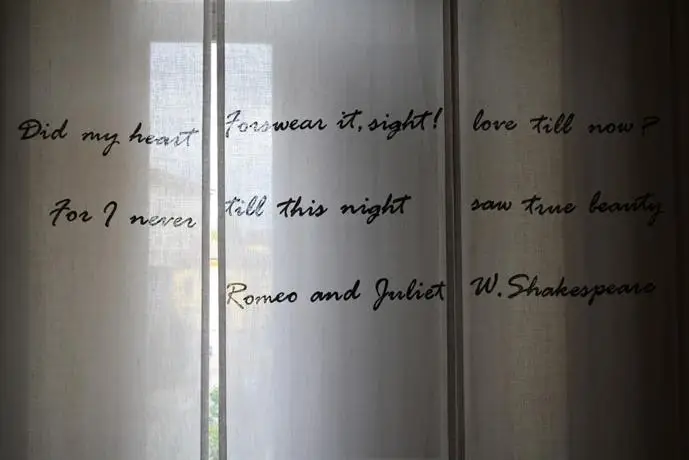 Did my heart Forswear it, sight! love till now?
For I never till this night saw true beauty
Romeo and Juliet W. Shakespeare